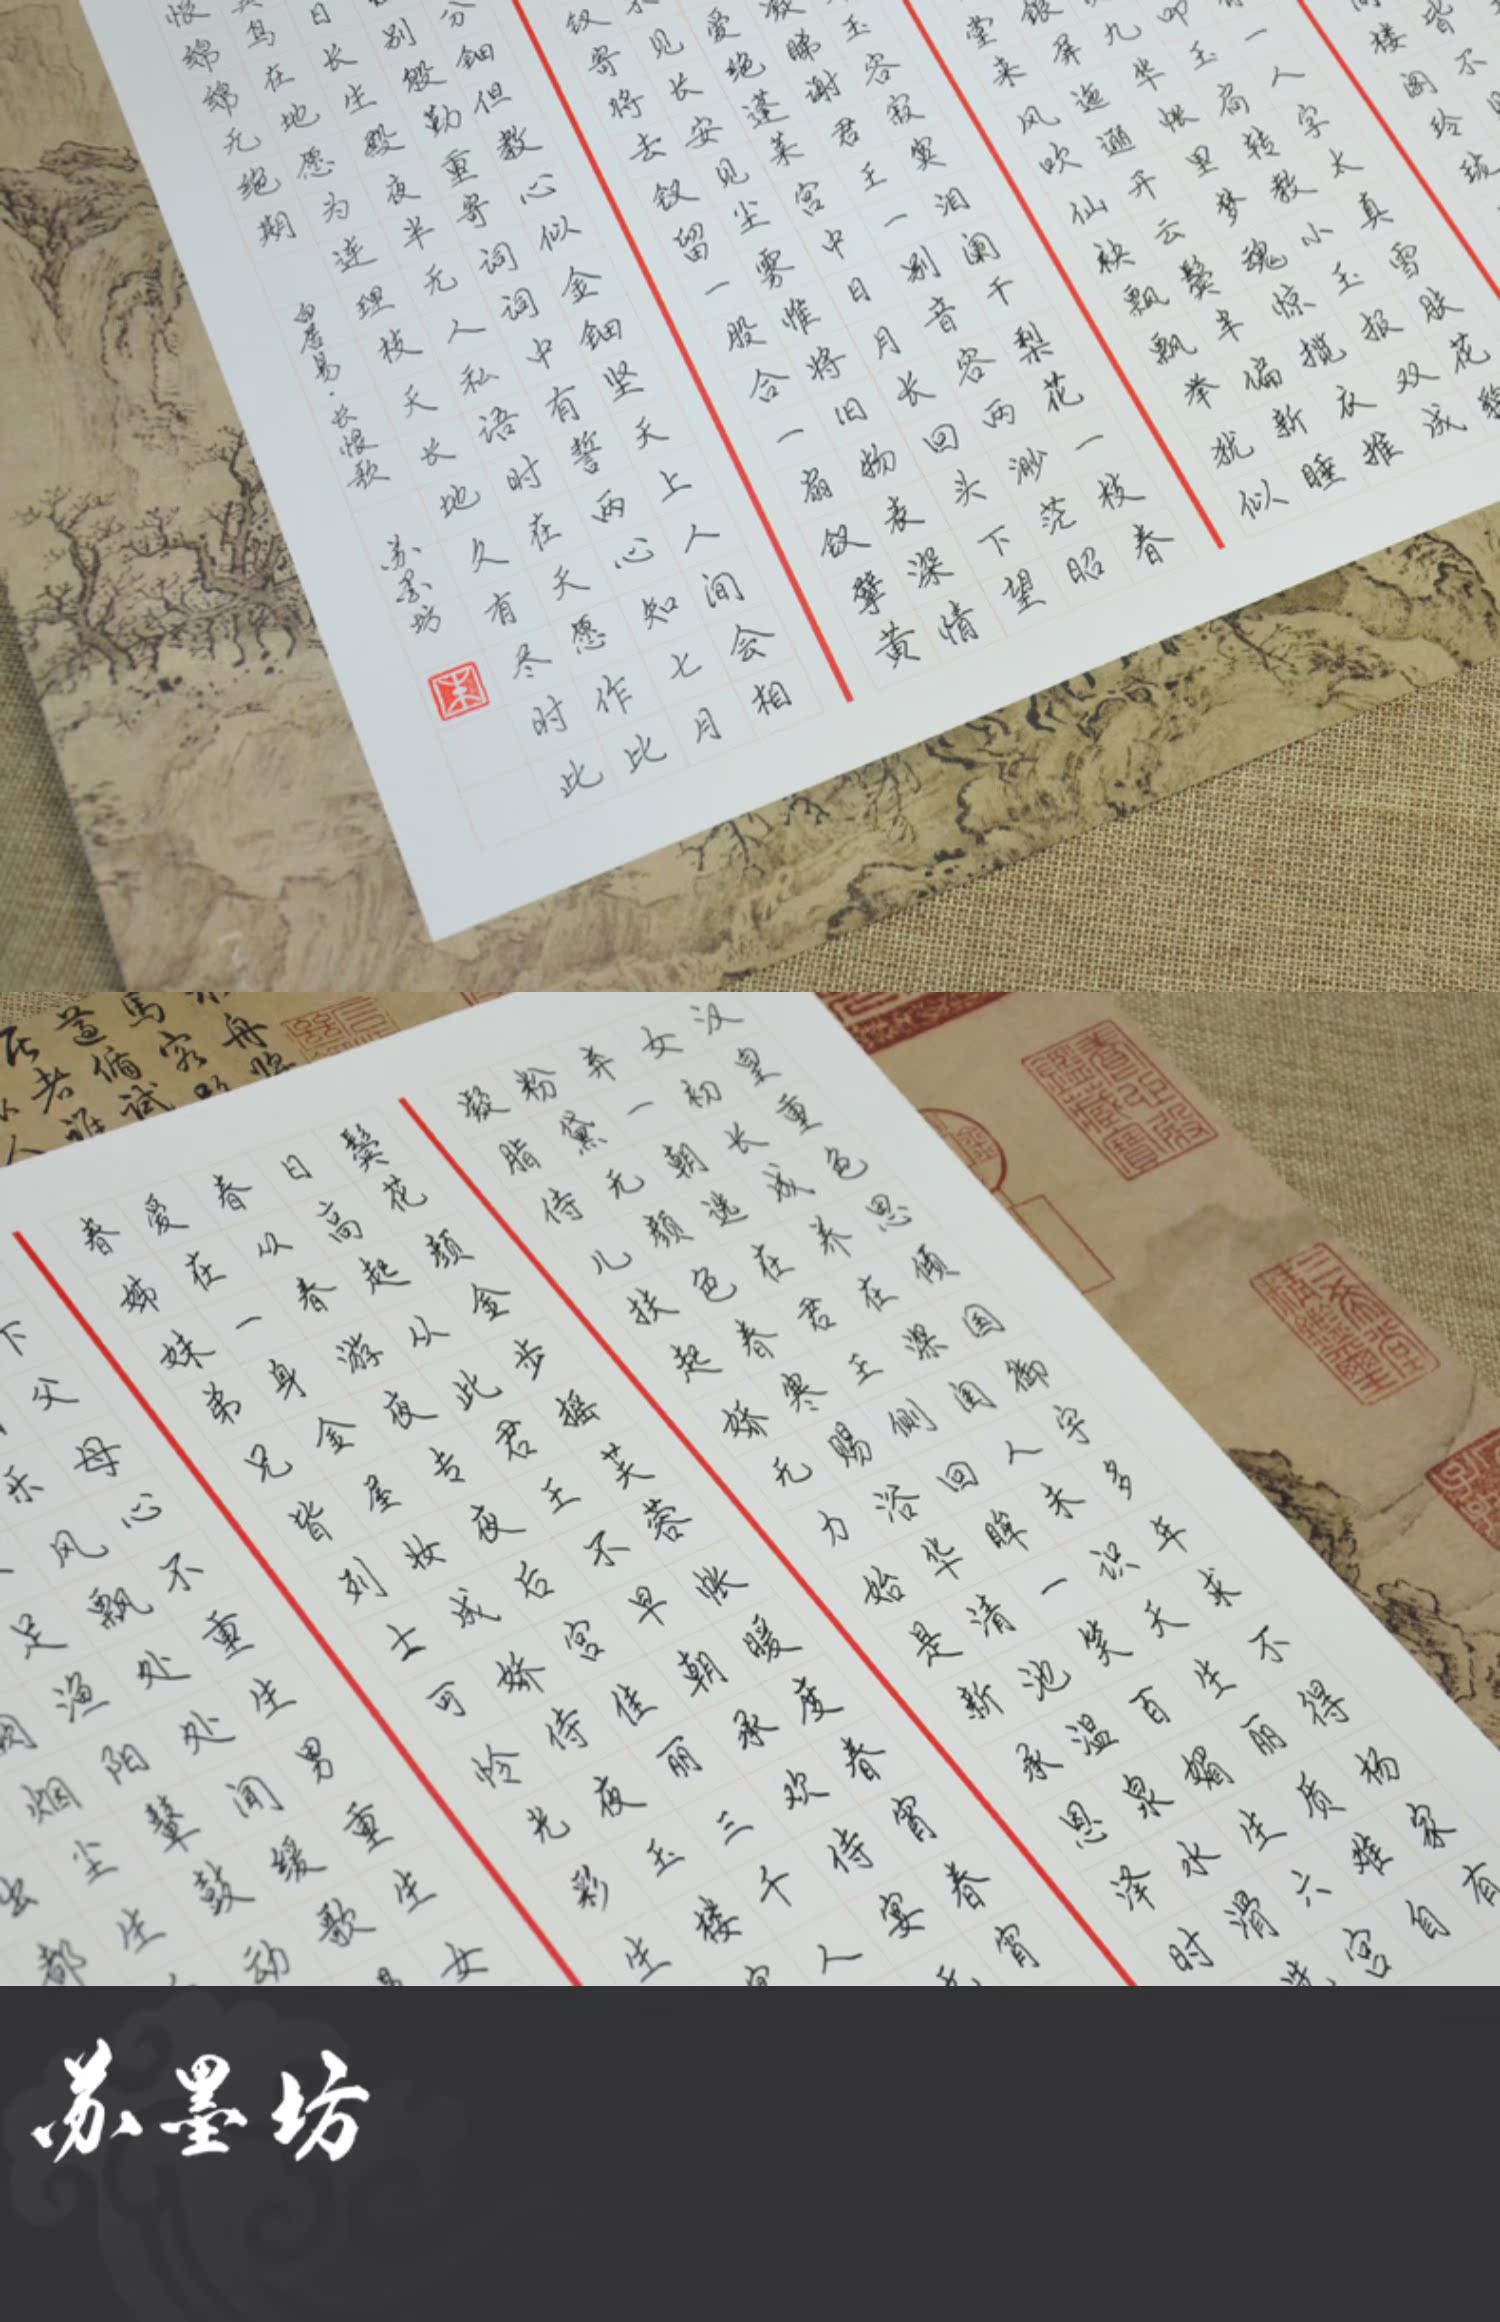 楼阁玲
皆不
一人字太真雪肤花
叩玉扃转教小玉报双成
九华帐里梦魂惊揽衣推
银屏迤逦开云鬓半偏新睡
堂来风吹仙袂飘飘举犹似
玉容寂寞泪阑干梨花一枝春
凝睇谢君王一别音容两渺茫昭
爱绝蓬莱宫中日月长回头下望
见长安见尘雾惟将旧物表深情
钗寄将去钗留一股合一扇钗擘黄
分钿但教心似金钿坚天上人间会相
别殷勤重寄词词中有誓两心知七月
日长生殿夜半无人私语时在天愿作比
鸟在地愿为连理枝天长地久有尽时此
恨绵绵无绝期 白居易·长恨歌 苏墨坊
汉皇重色思倾国御宇多年求不得杨家有
女初长成养在深闺人未识天生丽质难自
弃一朝选在君王侧回眸一笑百媚生六宫
粉黛无颜色春寒赐浴华清池温泉水滑洗
凝脂侍儿扶起娇无力始是新承恩泽时
鬓花颜金步摇芙蓉帐暖度春宵春宵
日高起从此君王不早朝承欢侍宴无
春从春游夜专夜后宫佳丽三千人
爱在一身金屋妆成娇侍夜玉楼宴
春姊妹弟兄皆列士可怜光彩生
下父母心不重生男重生女
乐风飘处处闻缓歌
足渔阳鼙鼓动
阙烟尘生
出都
苏墨坊